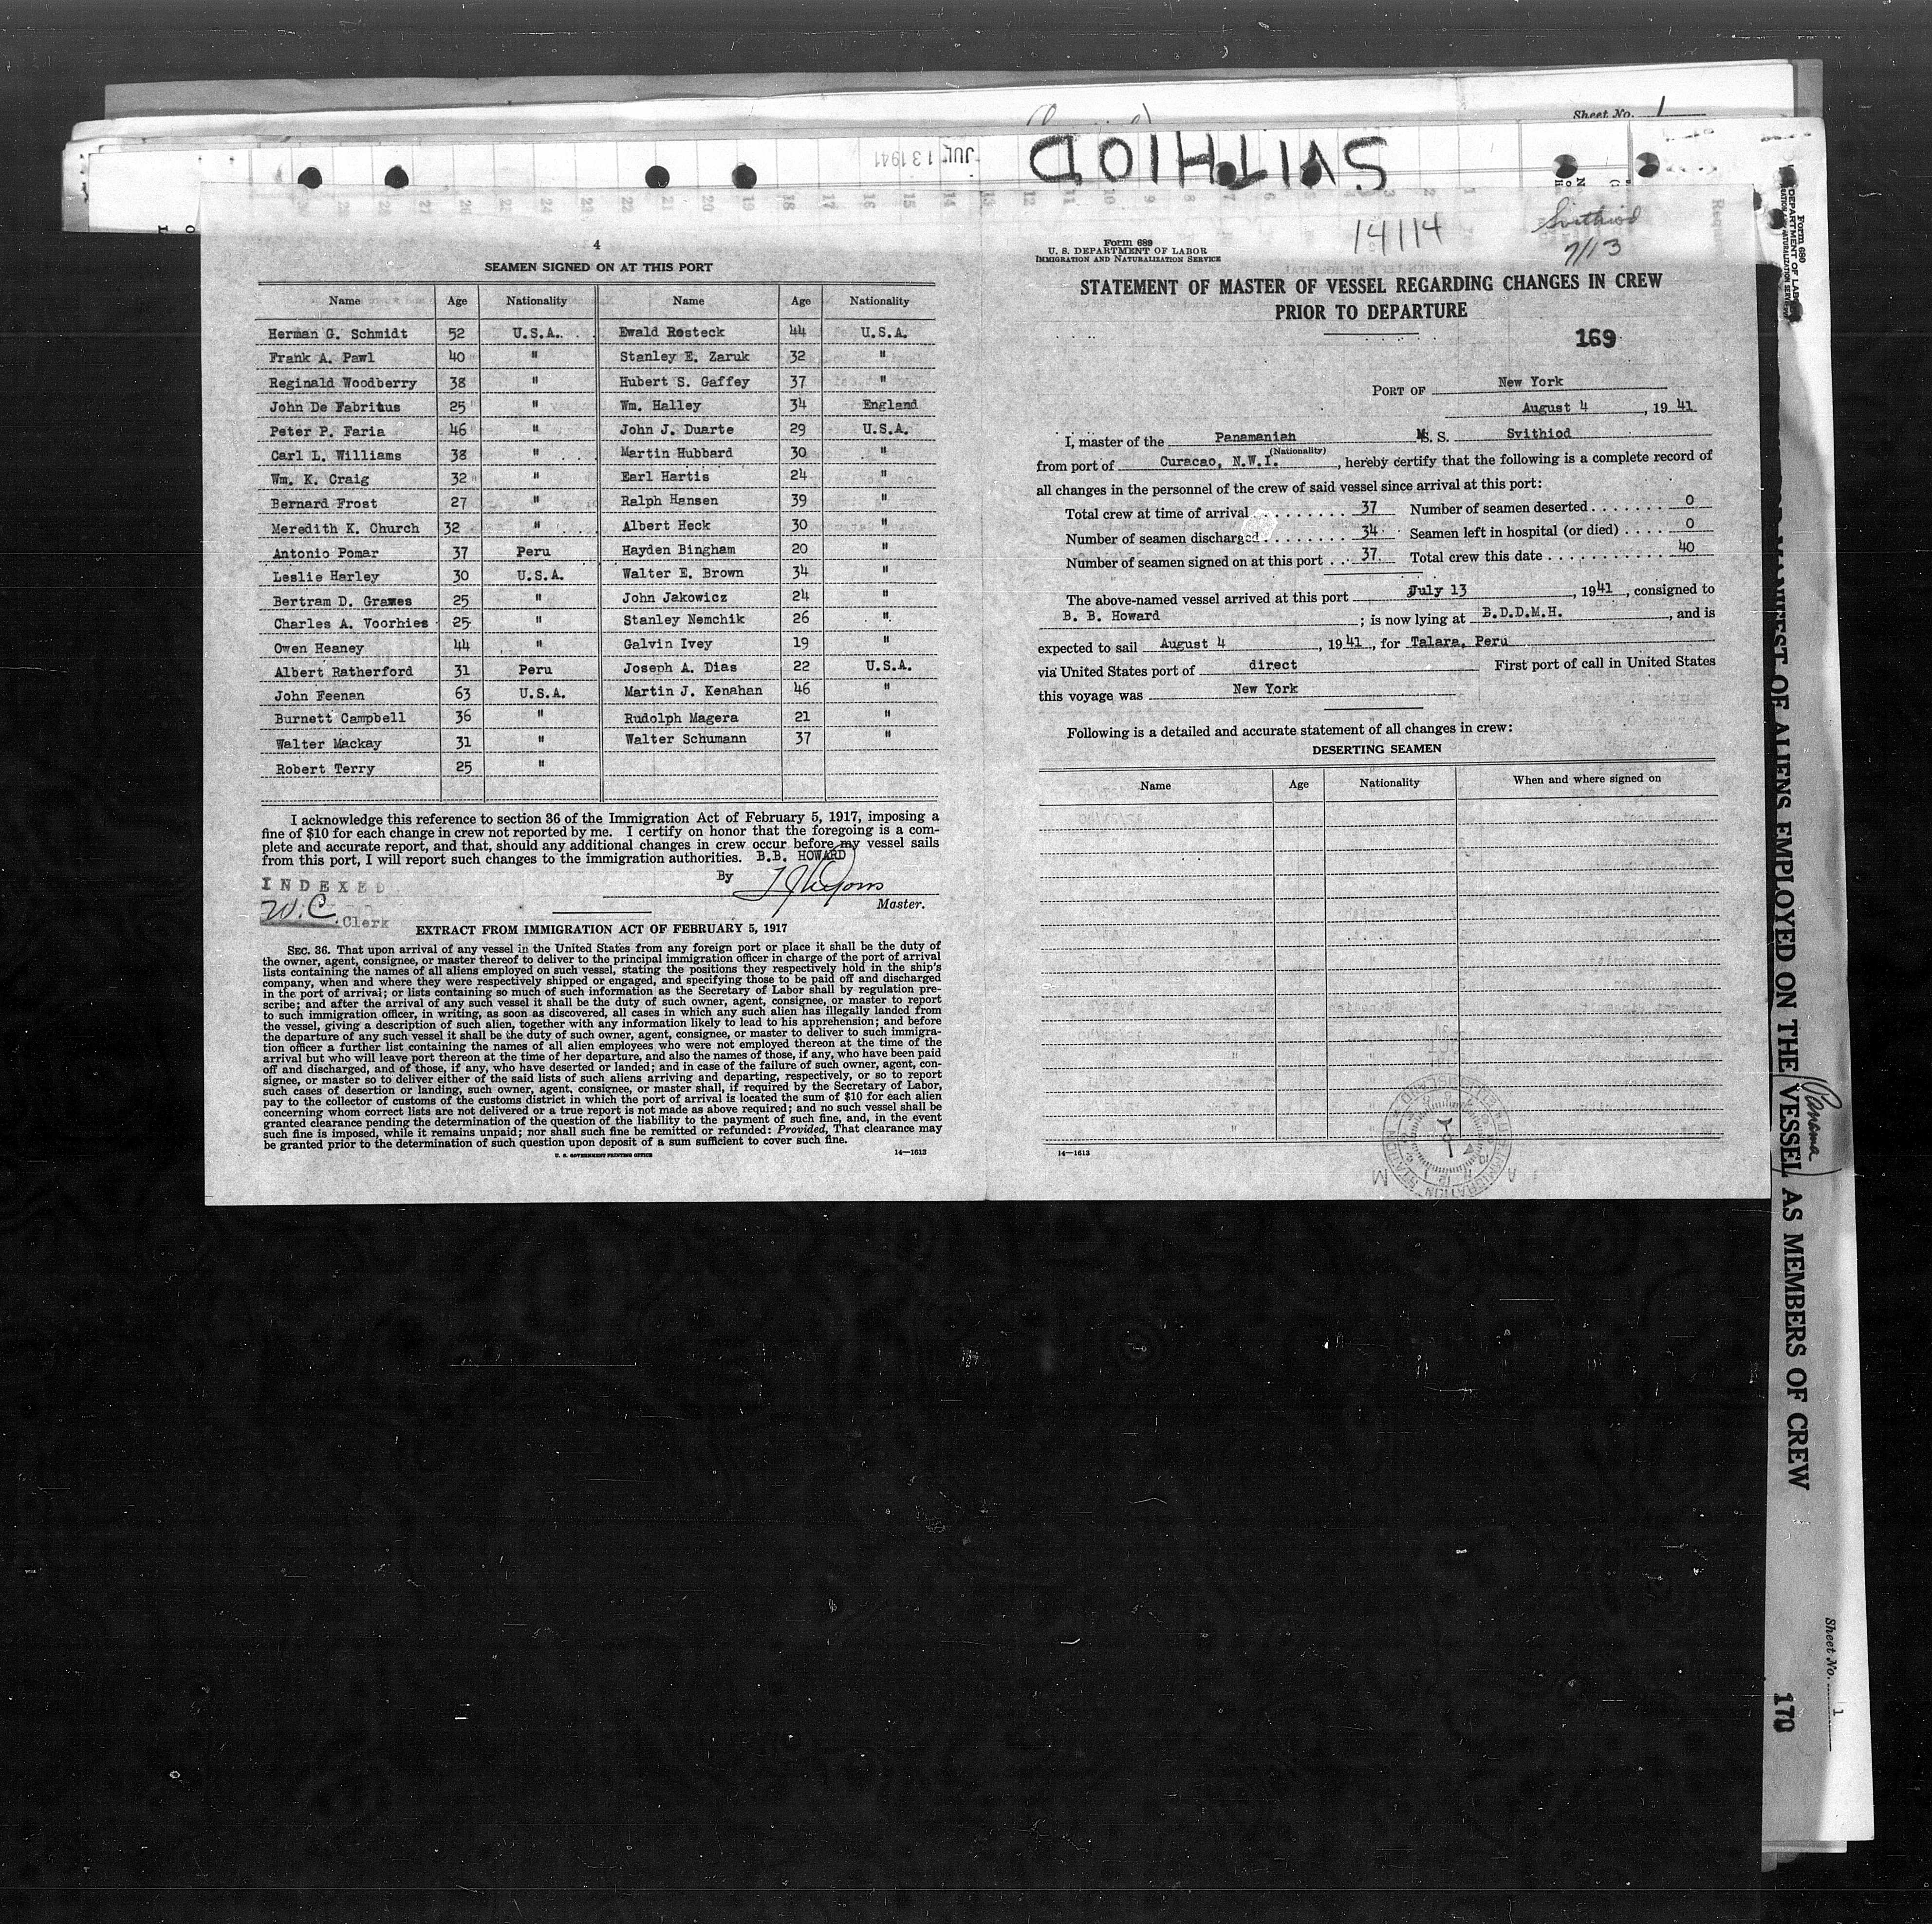 Sheet No. 1
JUL 13 1941
SVITHIOD
4
SEAMEN SIGNED ON AT THIS PORT
Name Age Nationality Name Age Nationality
Herman G. Schmidt 52 U.S.A. Ewald Rosteck 44 U.S.A.
Frank A. Pawl 40 " Stanley E. Zaruk 32 "
Reginald Woodberry 38 " Hubert S. Gaffey 37 "
John De Fabritus 25 " Wm. Halley 34 England
Peter P. Faria 46 " John J. Duarte 29 U.S.A.
Carl L. Williams 38 " Martin Hubbard 30 "
Wm. K. Craig 32 " Earl Hartis 24 "
Bernard Frost 27 " Ralph Hansen 39 "
Meredith K. Church 32 " Albert Heck 30 "
Antonio Pomar 37 Peru Hayden Bingham 20 "
Leslie Harley 30 U.S.A. Walter E. Brown 34 "
Bertram D. Grawes 25 " John Jakowicz 24 "
Charles A. Voorhies 25 " Stanley Nemchik 26 "
Owen Heaney 44 " Galvin Ivey 19 "
Albert Ratherford 31 Peru Joseph A. Dias 22 U.S.A.
John Feenan 63 U.S.A. Martin J. Kenahan 46 "
Burnett Campbell 36 " Rudolph Magera 21 "
Walter Mackay 31 " Walter Schumann 37 "
Robert Terry 25 "
I acknowledge this reference to section 36 of the Immigration Act of February 5, 1917, imposing a
fine of $10 for each change in crew not reported by me. I certify on honor that the foregoing is a com-
plete and accurate report, and that, should any additional changes in crew occur before my vessel sails
from this port, I will report such changes to the immigration authorities. B.B. HOWARD
By
Master.
INDEXED
W.C. Clerk
EXTRACT FROM IMMIGRATION ACT OF FEBRUARY 5, 1917
SEC. 36. That upon arrival of any vessel in the United States from any foreign port or place it shall be the duty of
the owner, agent, consignee, or master thereof to deliver to the principal immigration officer in charge of the port of arrival
lists containing the names of all aliens employed on such vessel, stating the positions they respectively hold in the ship's
company, when and where they were respectively shipped or engaged, and specifying those to be paid off and discharged
in the port of arrival; or lists containing so much of such information as the Secretary of Labor shall by regulation pre-
scribe; and after the arrival of any such vessel it shall be the duty of such owner, agent, consignee, or master to report
to such immigration officer, in writing, as soon as discovered, all cases in which any such alien has illegally landed from
the vessel, giving a description of such alien, together with any information likely to lead to his apprehension; and before
the departure of any such vessel it shall be the duty of such owner, agent, consignee, or master to deliver to such immigra-
tion officer a further list containing the names of all alien employees who were not employed thereon at the time of the
arrival but who will leave port thereon at the time of her departure, and also the names of those, if any, who have been paid
off and discharged, and of those, if any, who have deserted or landed; and in case of the failure of such owner, agent, con-
signee, or master so to deliver either of the said lists of such aliens arriving and departing, respectively, or so to report
such cases of desertion or landing, such owner, agent, consignee, or master shall, if required by the Secretary of Labor,
pay to the collector of customs of the customs district in which the port of arrival is located the sum of $10 for each alien
concerning whom correct lists are not delivered or a true report is not made as above required; and no such vessel shall be
granted clearance pending the determination of the question of the liability to the payment of such fine, and, in the event
such fine is imposed, while it remains unpaid; nor shall such fine be remitted or refunded: Provided, That clearance may
be granted prior to the determination of such question upon deposit of a sum sufficient to cover such fine.
U. S. GOVERNMENT PRINTING OFFICE 14—1613
Form 689
U. S. DEPARTMENT OF LABOR
IMMIGRATION AND NATURALIZATION SERVICE
14114
Svithiod
7/13
STATEMENT OF MASTER OF VESSEL REGARDING CHANGES IN CREW
PRIOR TO DEPARTURE
169
PORT OF New York
August 4, 1941
I, master of the Panamanian M.S. S. Svithiod
(Nationality)
from port of Curacao, N.W.I., hereby certify that the following is a complete record of
all changes in the personnel of the crew of said vessel since arrival at this port:
Total crew at time of arrival 37 Number of seamen deserted 0
Number of seamen discharged 34 Seamen left in hospital (or died) 0
Number of seamen signed on at this port 37 Total crew this date 40
The above-named vessel arrived at this port July 13, 1941, consigned to
B. B. Howard; is now lying at B.D.D.M.H., and is
expected to sail August 4, 1941, for Talara, Peru
via United States port of direct First port of call in United States
this voyage was New York
Following is a detailed and accurate statement of all changes in crew:
DESERTING SEAMEN
Name Age Nationality When and where signed on
14—1613
Form 689
DEPARTMENT OF LABOR
MANIFEST OF ALIENS EMPLOYED ON THE VESSEL AS MEMBERS OF CREW
(Panama)
Sheet No. 1
170